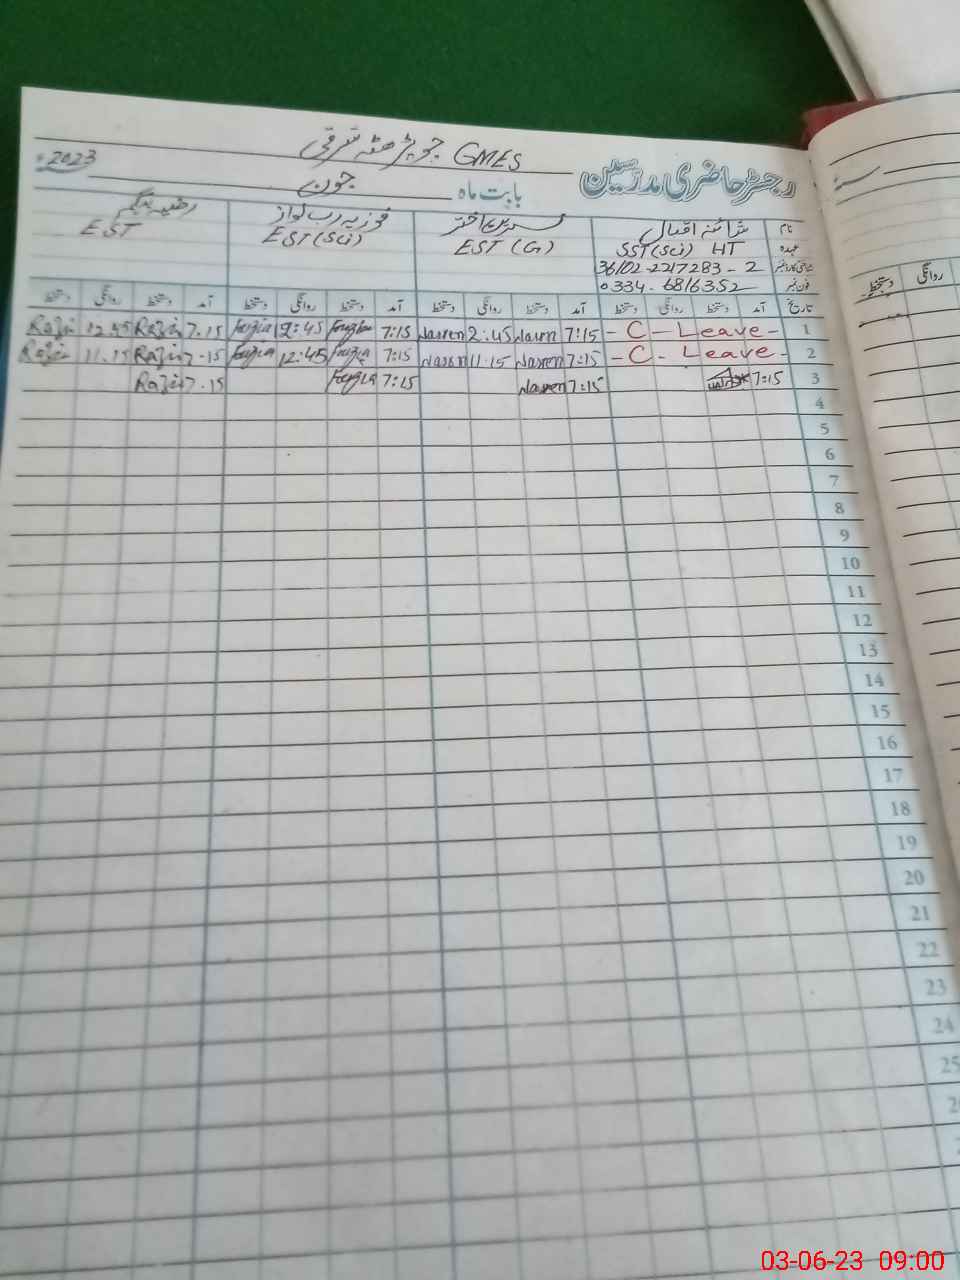 GMES
رجسٹر حاضری مدرسین بابت ماہ جون 2023
نام
عہدہ SST (Sci) HT EST (G) EST (Sci) EST
شناختی کارڈ نمبر 36102-2217283-2
فون نمبر 0334-6816352
تاریخ آمد دستخط روانگی دستخط آمد دستخط روانگی دستخط آمد دستخط روانگی دستخط آمد دستخط روانگی دستخط
1 - C - Leave - 7:15 2:45 7:15 Fouzia 12:45 Fouzia 7.15 Razia 12.45 Razia
2 - C - Leave - 7:15 11.15 7:15 Fouzia 12:45 Fouzia 7.15 Razia 11.15 Razia
3 7:15 7:15 7:15 Fouzia 7.15 Razia
4
5
6
7
8
9
10
11
12
13
14
15
16
17
18
19
20
21
22
23
24
25
روانگی دستخط
03-06-23 09:00